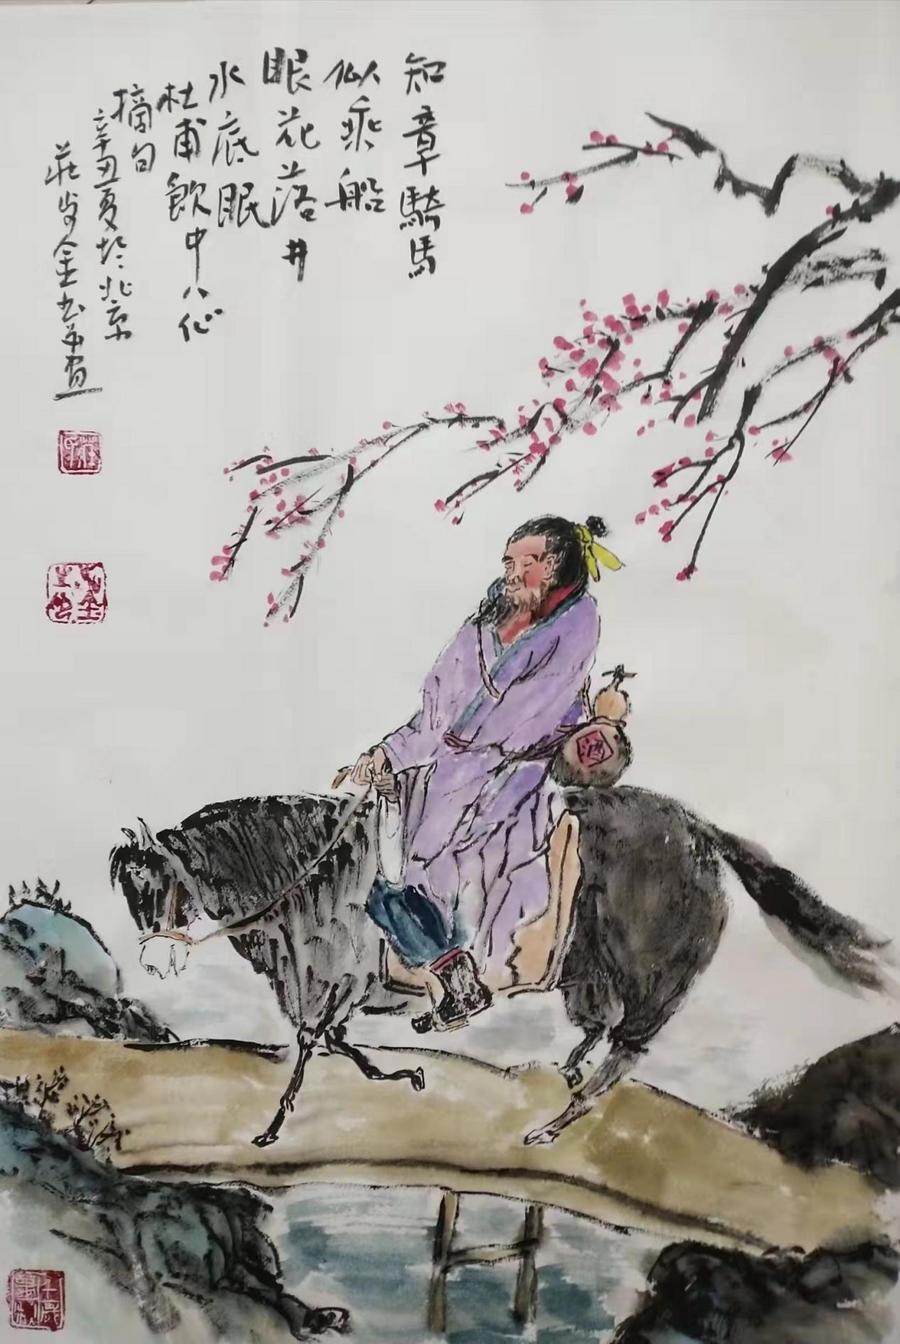 知章騎馬
似乘船
眼花落井
水底眠
杜甫飲中八仙
摘句
辛丑夏於北京
莊步金书画
酒